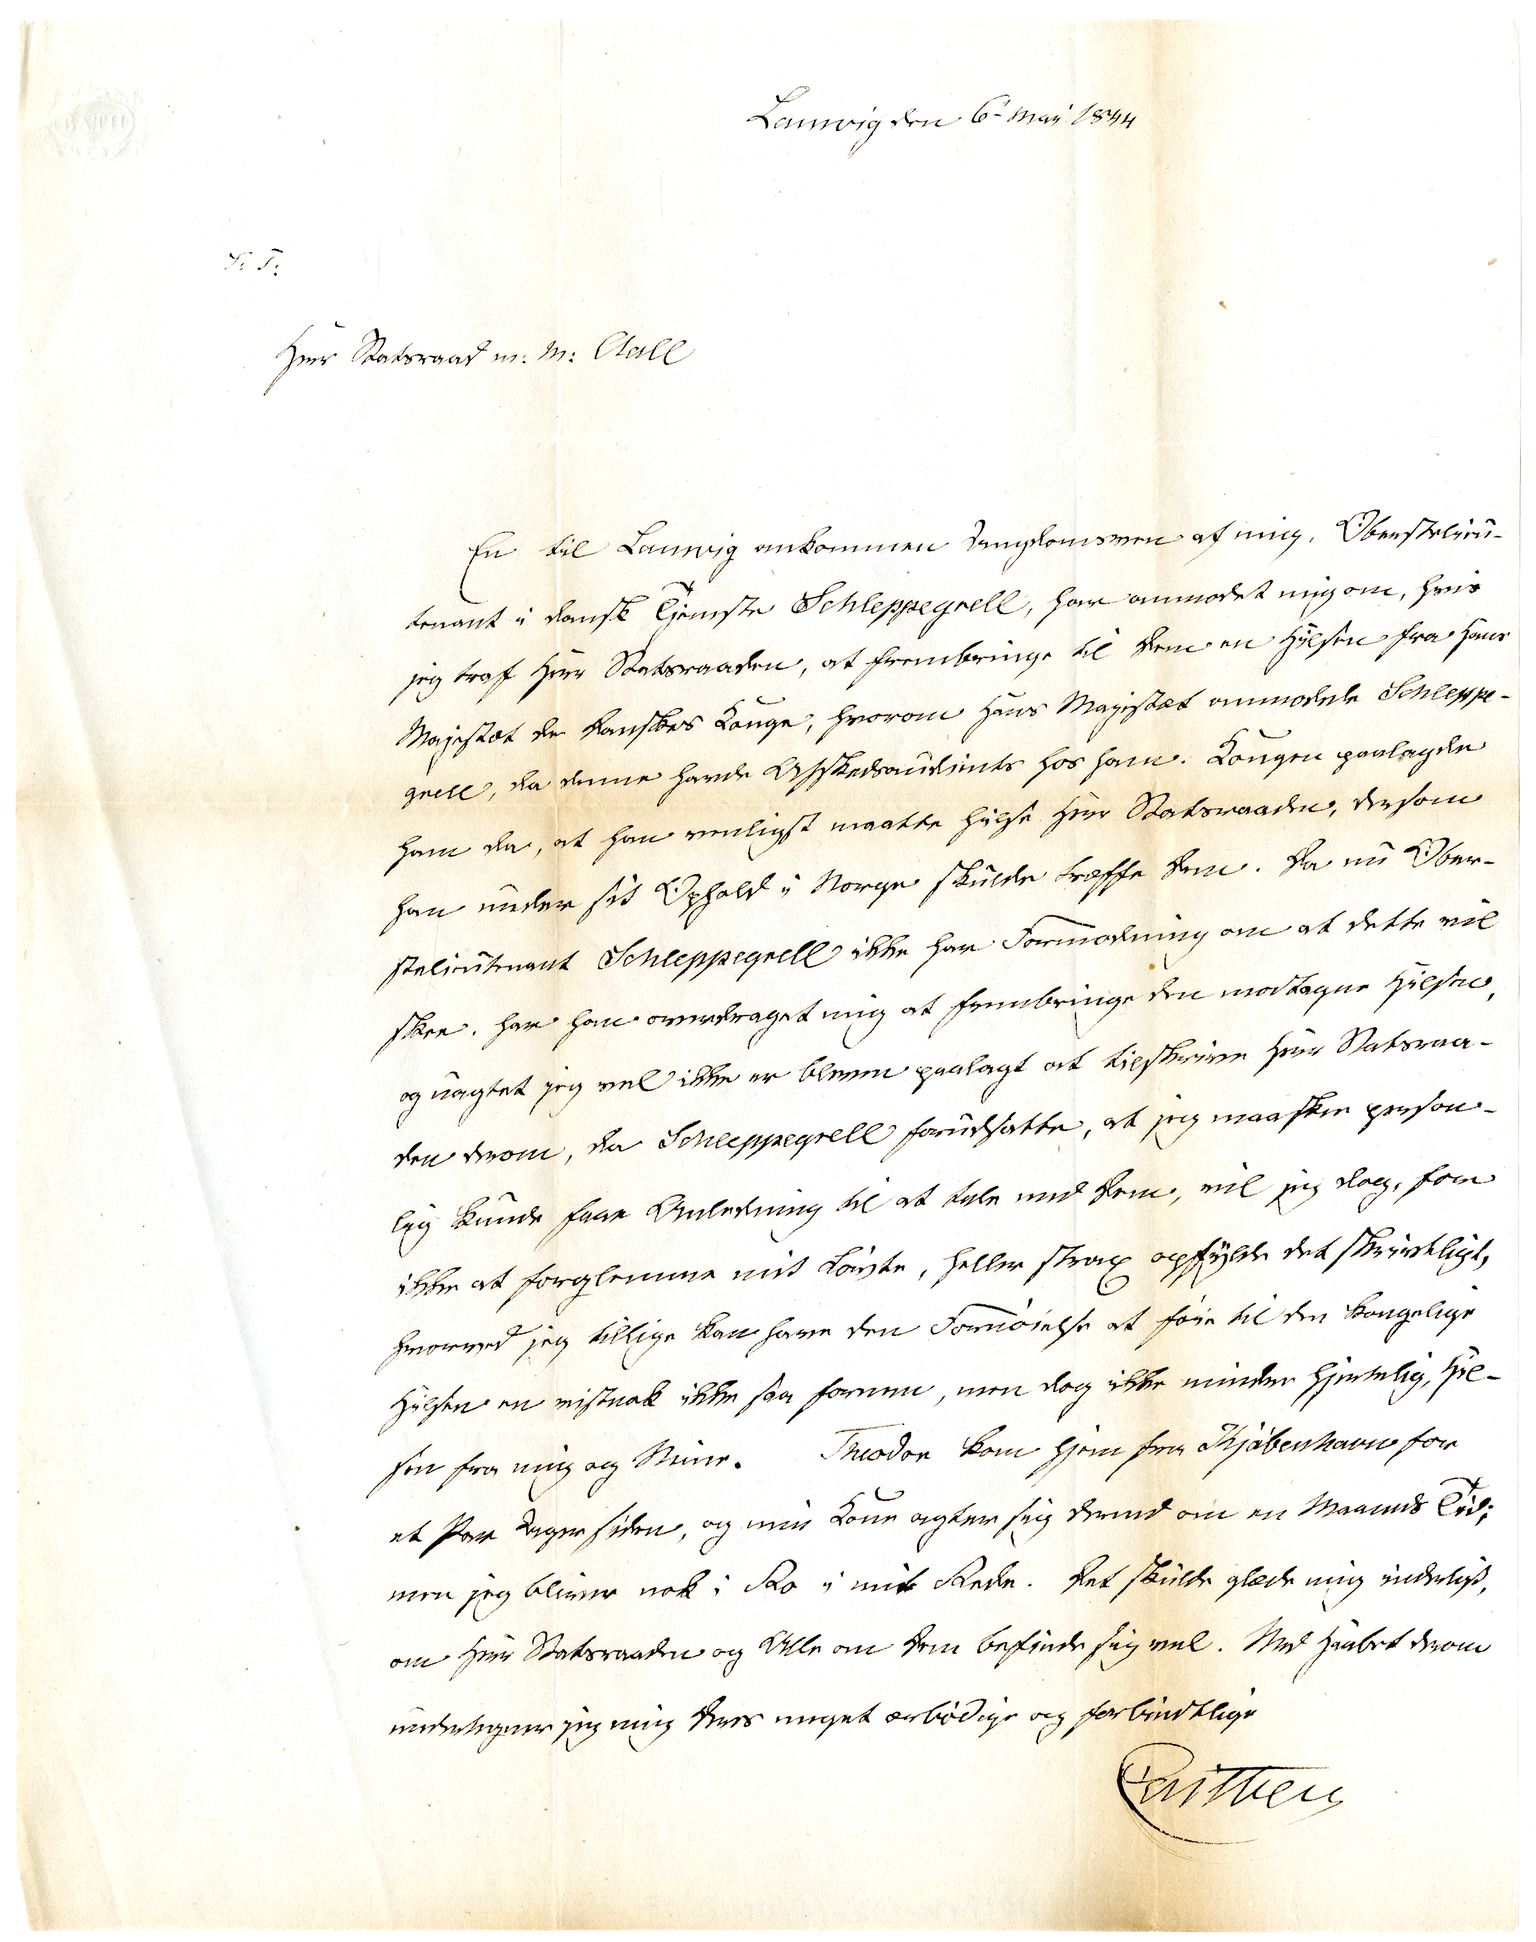 Laurvig den 6- Mai 1844
S: T:
Herr Statsraad m: M: Aall
En til Laurvig ankommen Ungdomsven af mig, Oberstelieu-
tenant i dansk Tjeneste Schleppegrell, har anmodet mig om, hvis
jeg traf Herr Statsraaden, at frembringe til Dem en Hilsen fra Hans
Majestæt de Danskes Konge, hvorom Hans Majestæt anmodede Schleppe-
grell, da denne havde Afskedsaudients hos ham. Kongen paalagde
ham da, at han venligst maatte hilse Herr Statsraaden, dersom
han under sit Ophold i Norge skulde træffe Dem. Da nu Ober-
stelieutenant Schleppegrell ikke har Formodning om at dette vil
skee, har han overdraget mig at frembringe den modtagne Hilsen,
og uagtet jeg vel ikke er bleven paalagt at tilskrive Herr Statsraa-
den derom, da Schleppegrell forudsatte, at jeg maaskee person-
lig kunde faae Anledning til at tale med Dem, vil jeg dog, for
ikke at forglemme mit Løvte, heller strax opfylde det skrivtligt,
hvorved jeg tillige kan have den Fornøielse at føie til den kongelige
Hilsen en vistnok ikke saa fornem, men dog ikke mindre hjertelig, Hil-
sen fra mig og Mine. Theodor kom hjem fra Kjøbenhavn for
et Par Dager siden, og min Kone agter sig derned om en Maaneds Tid;
men jeg bliver nok i Ro i mit Rede. Det skulde glæde mig inderligt,
om Herr Statsraaden og Alle om Dem befinde sig vel. Med Haabet derom
undertegner jeg mig Deres meget ærbødige og forbindtlige